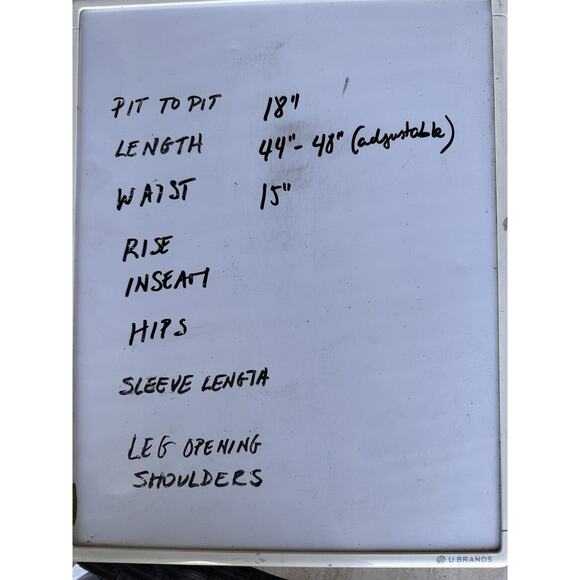 PIT TO PIT 18"
LENGTH 44"-48" (adjustable)
WAIST 15"
RISE
INSEAM
HIPS
SLEEVE LENGTH
LEG OPENING
SHOULDERS
U BRANDS